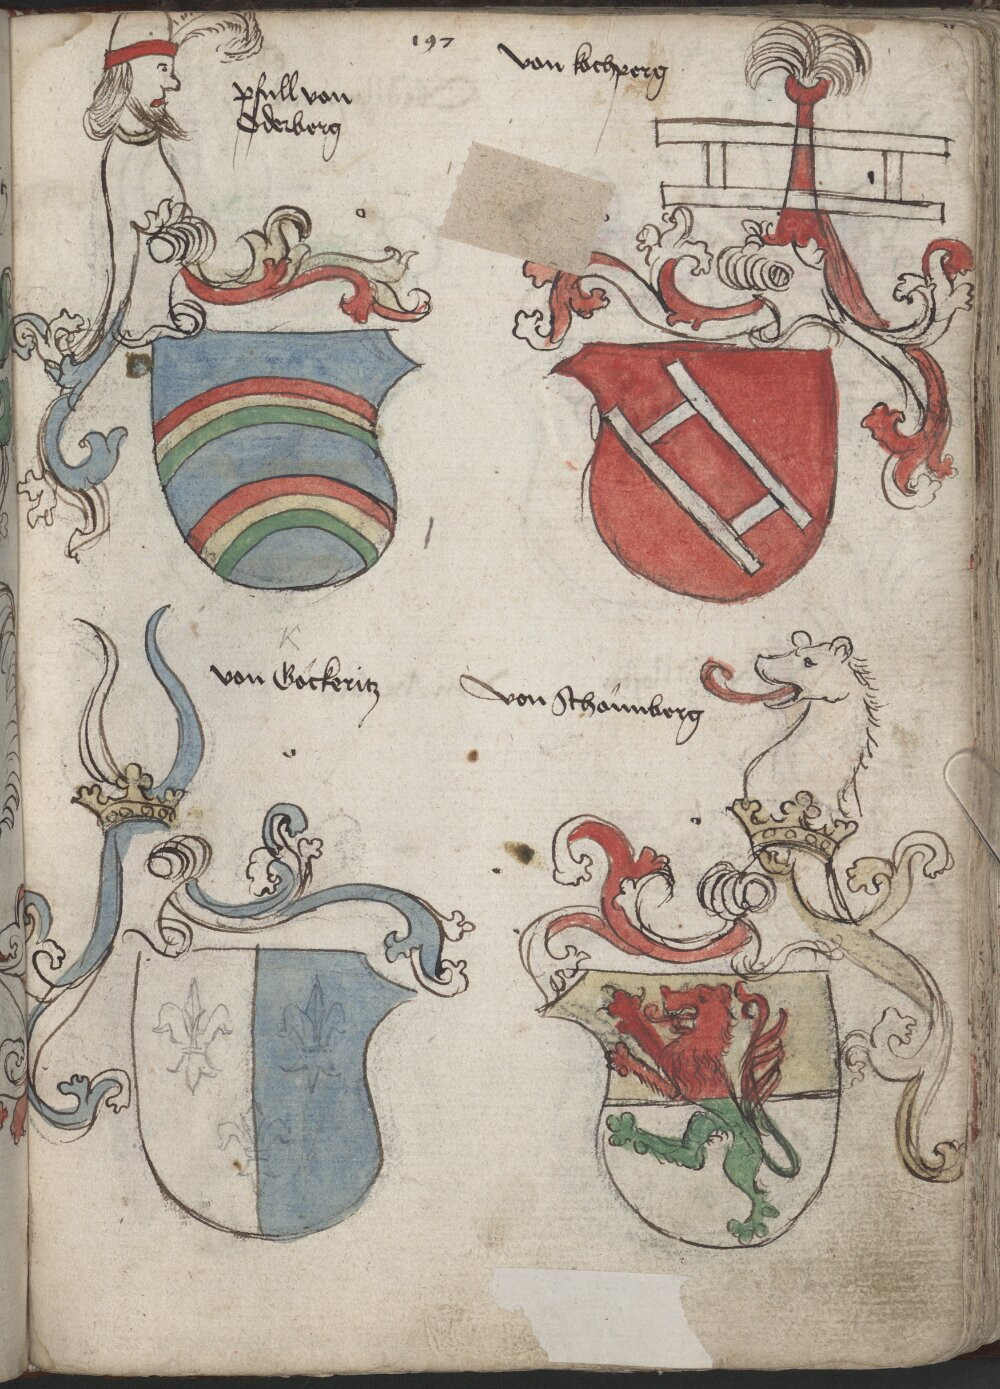 197
pfull von
Oderberg
von kochperg
K
von Göckeritz
von Schaumberg